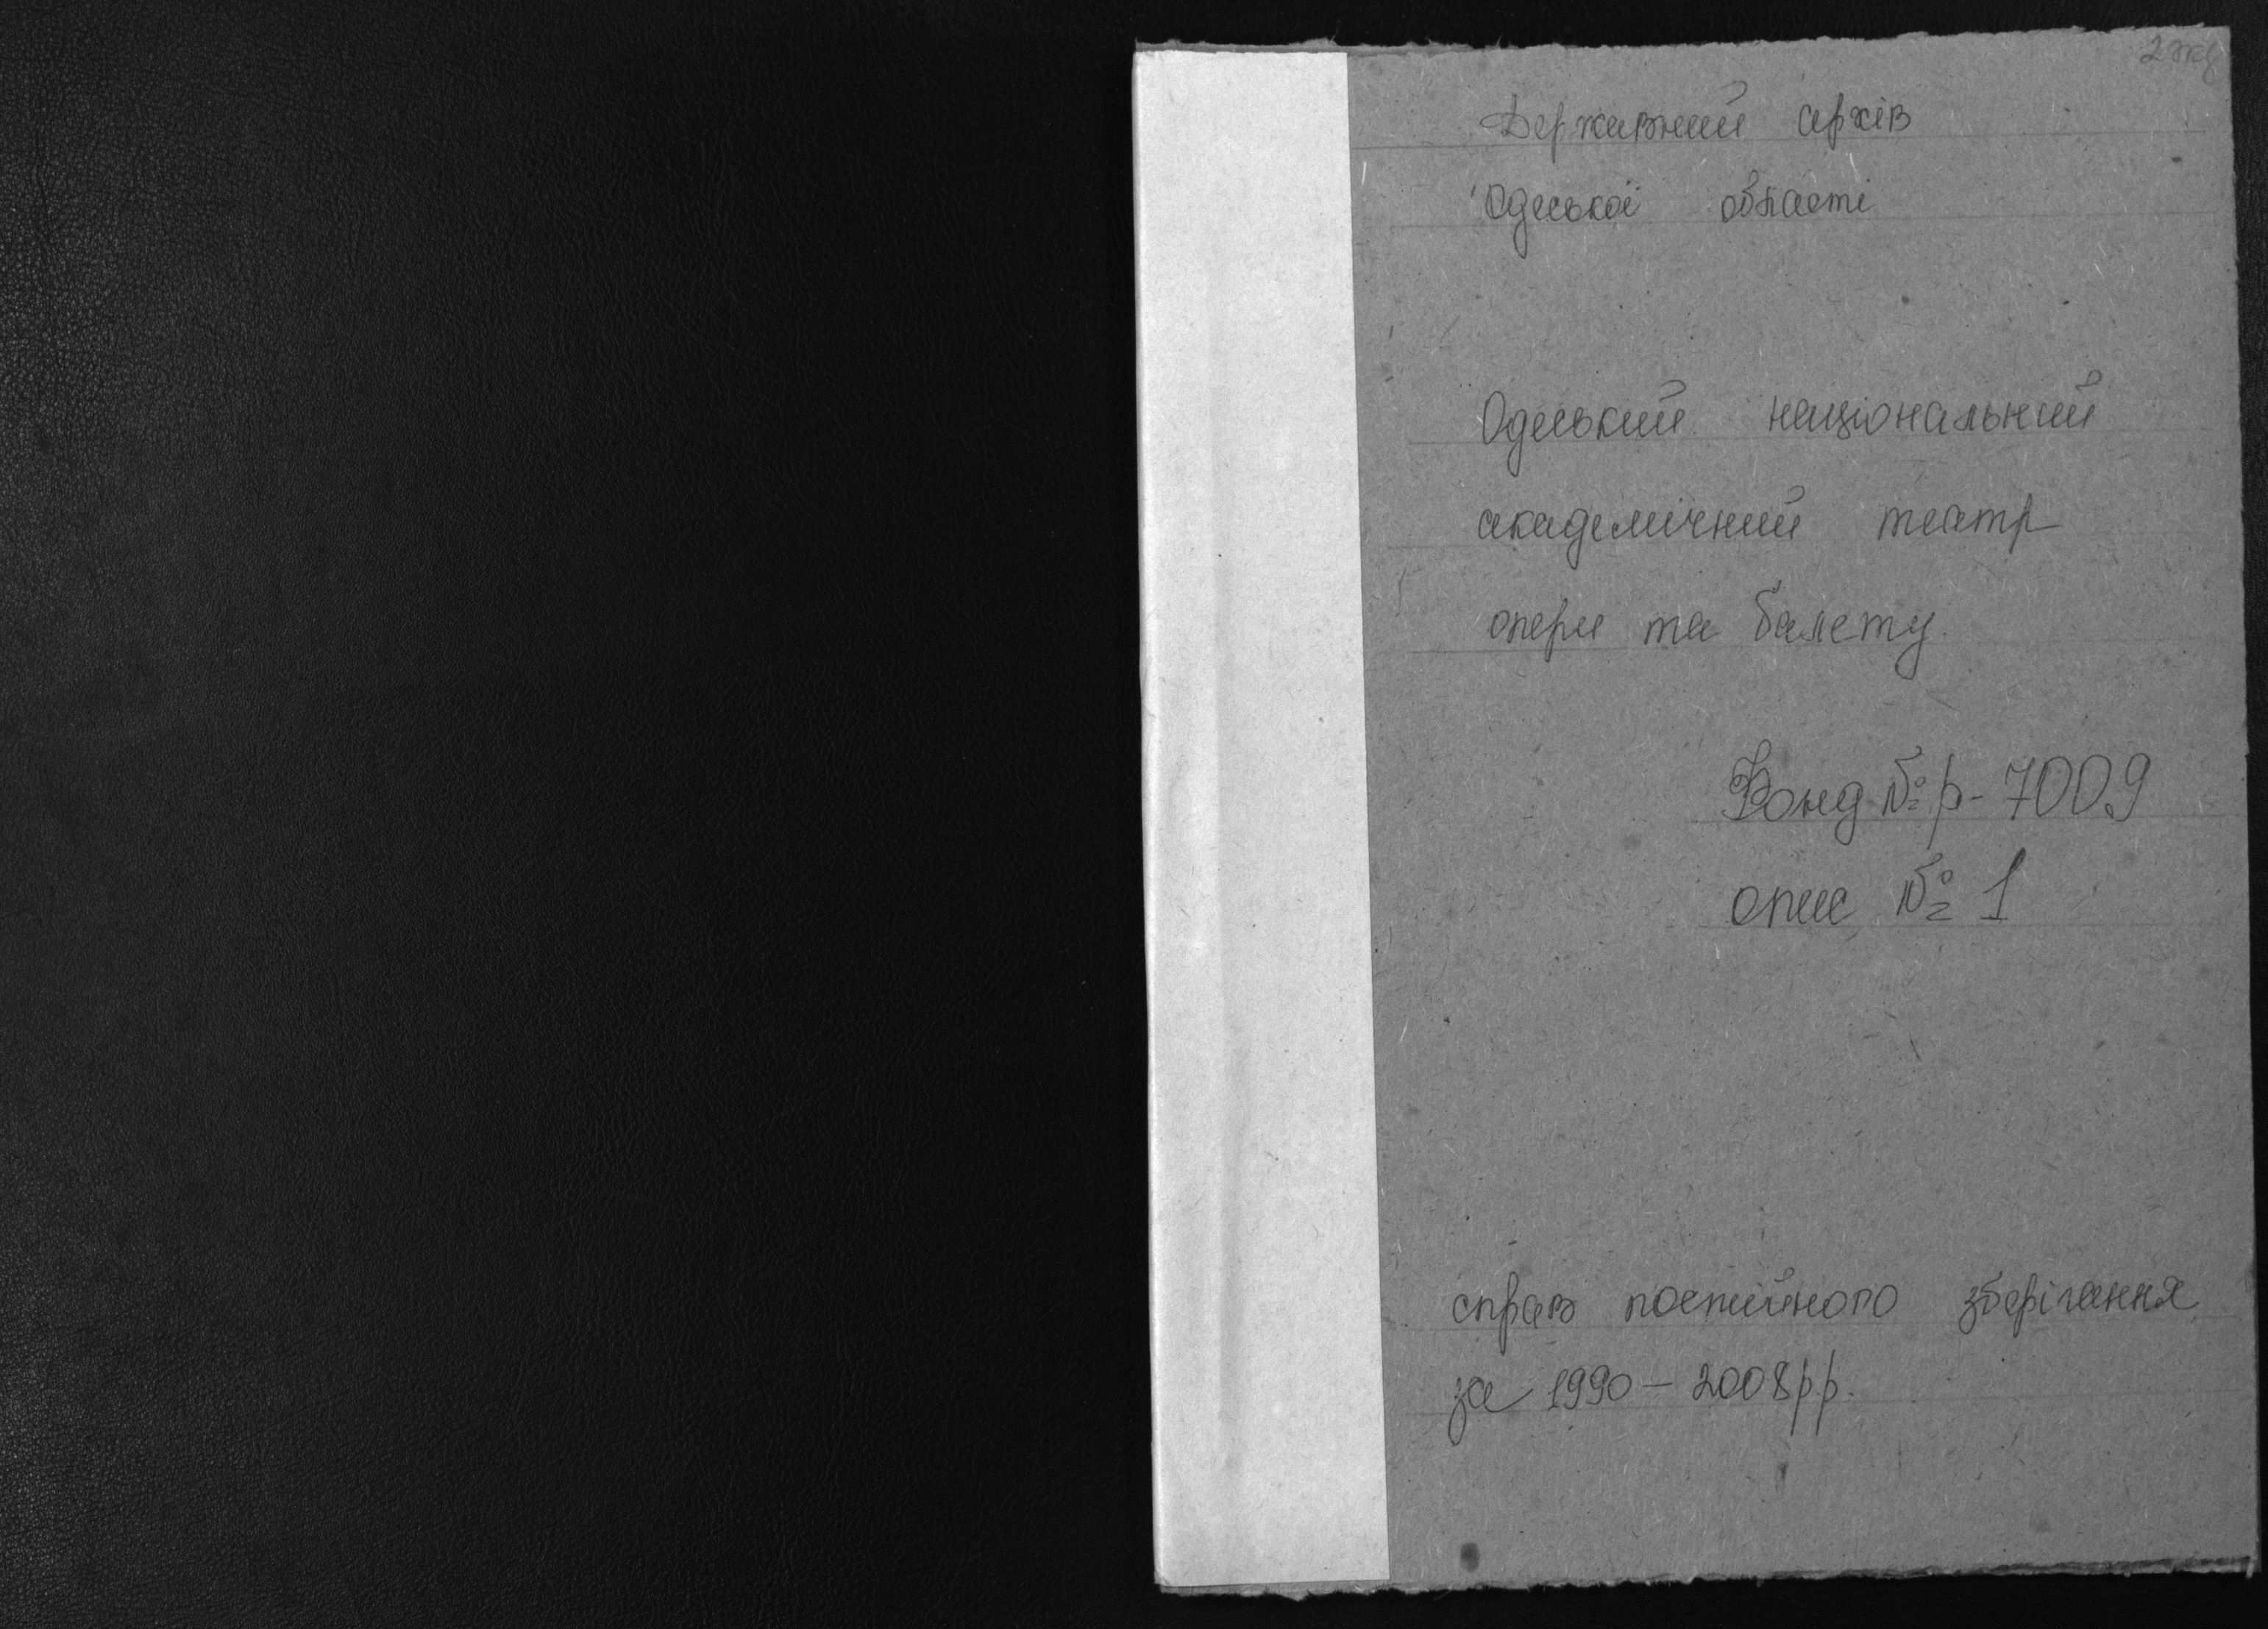 2 экз
Державний архів
Одеської області
Одеський національний
академічний театр
опери та балету.
Фонд № р - 7009
опис № 1
справ постійного зберігання
за 1990 – 2008 р.р.